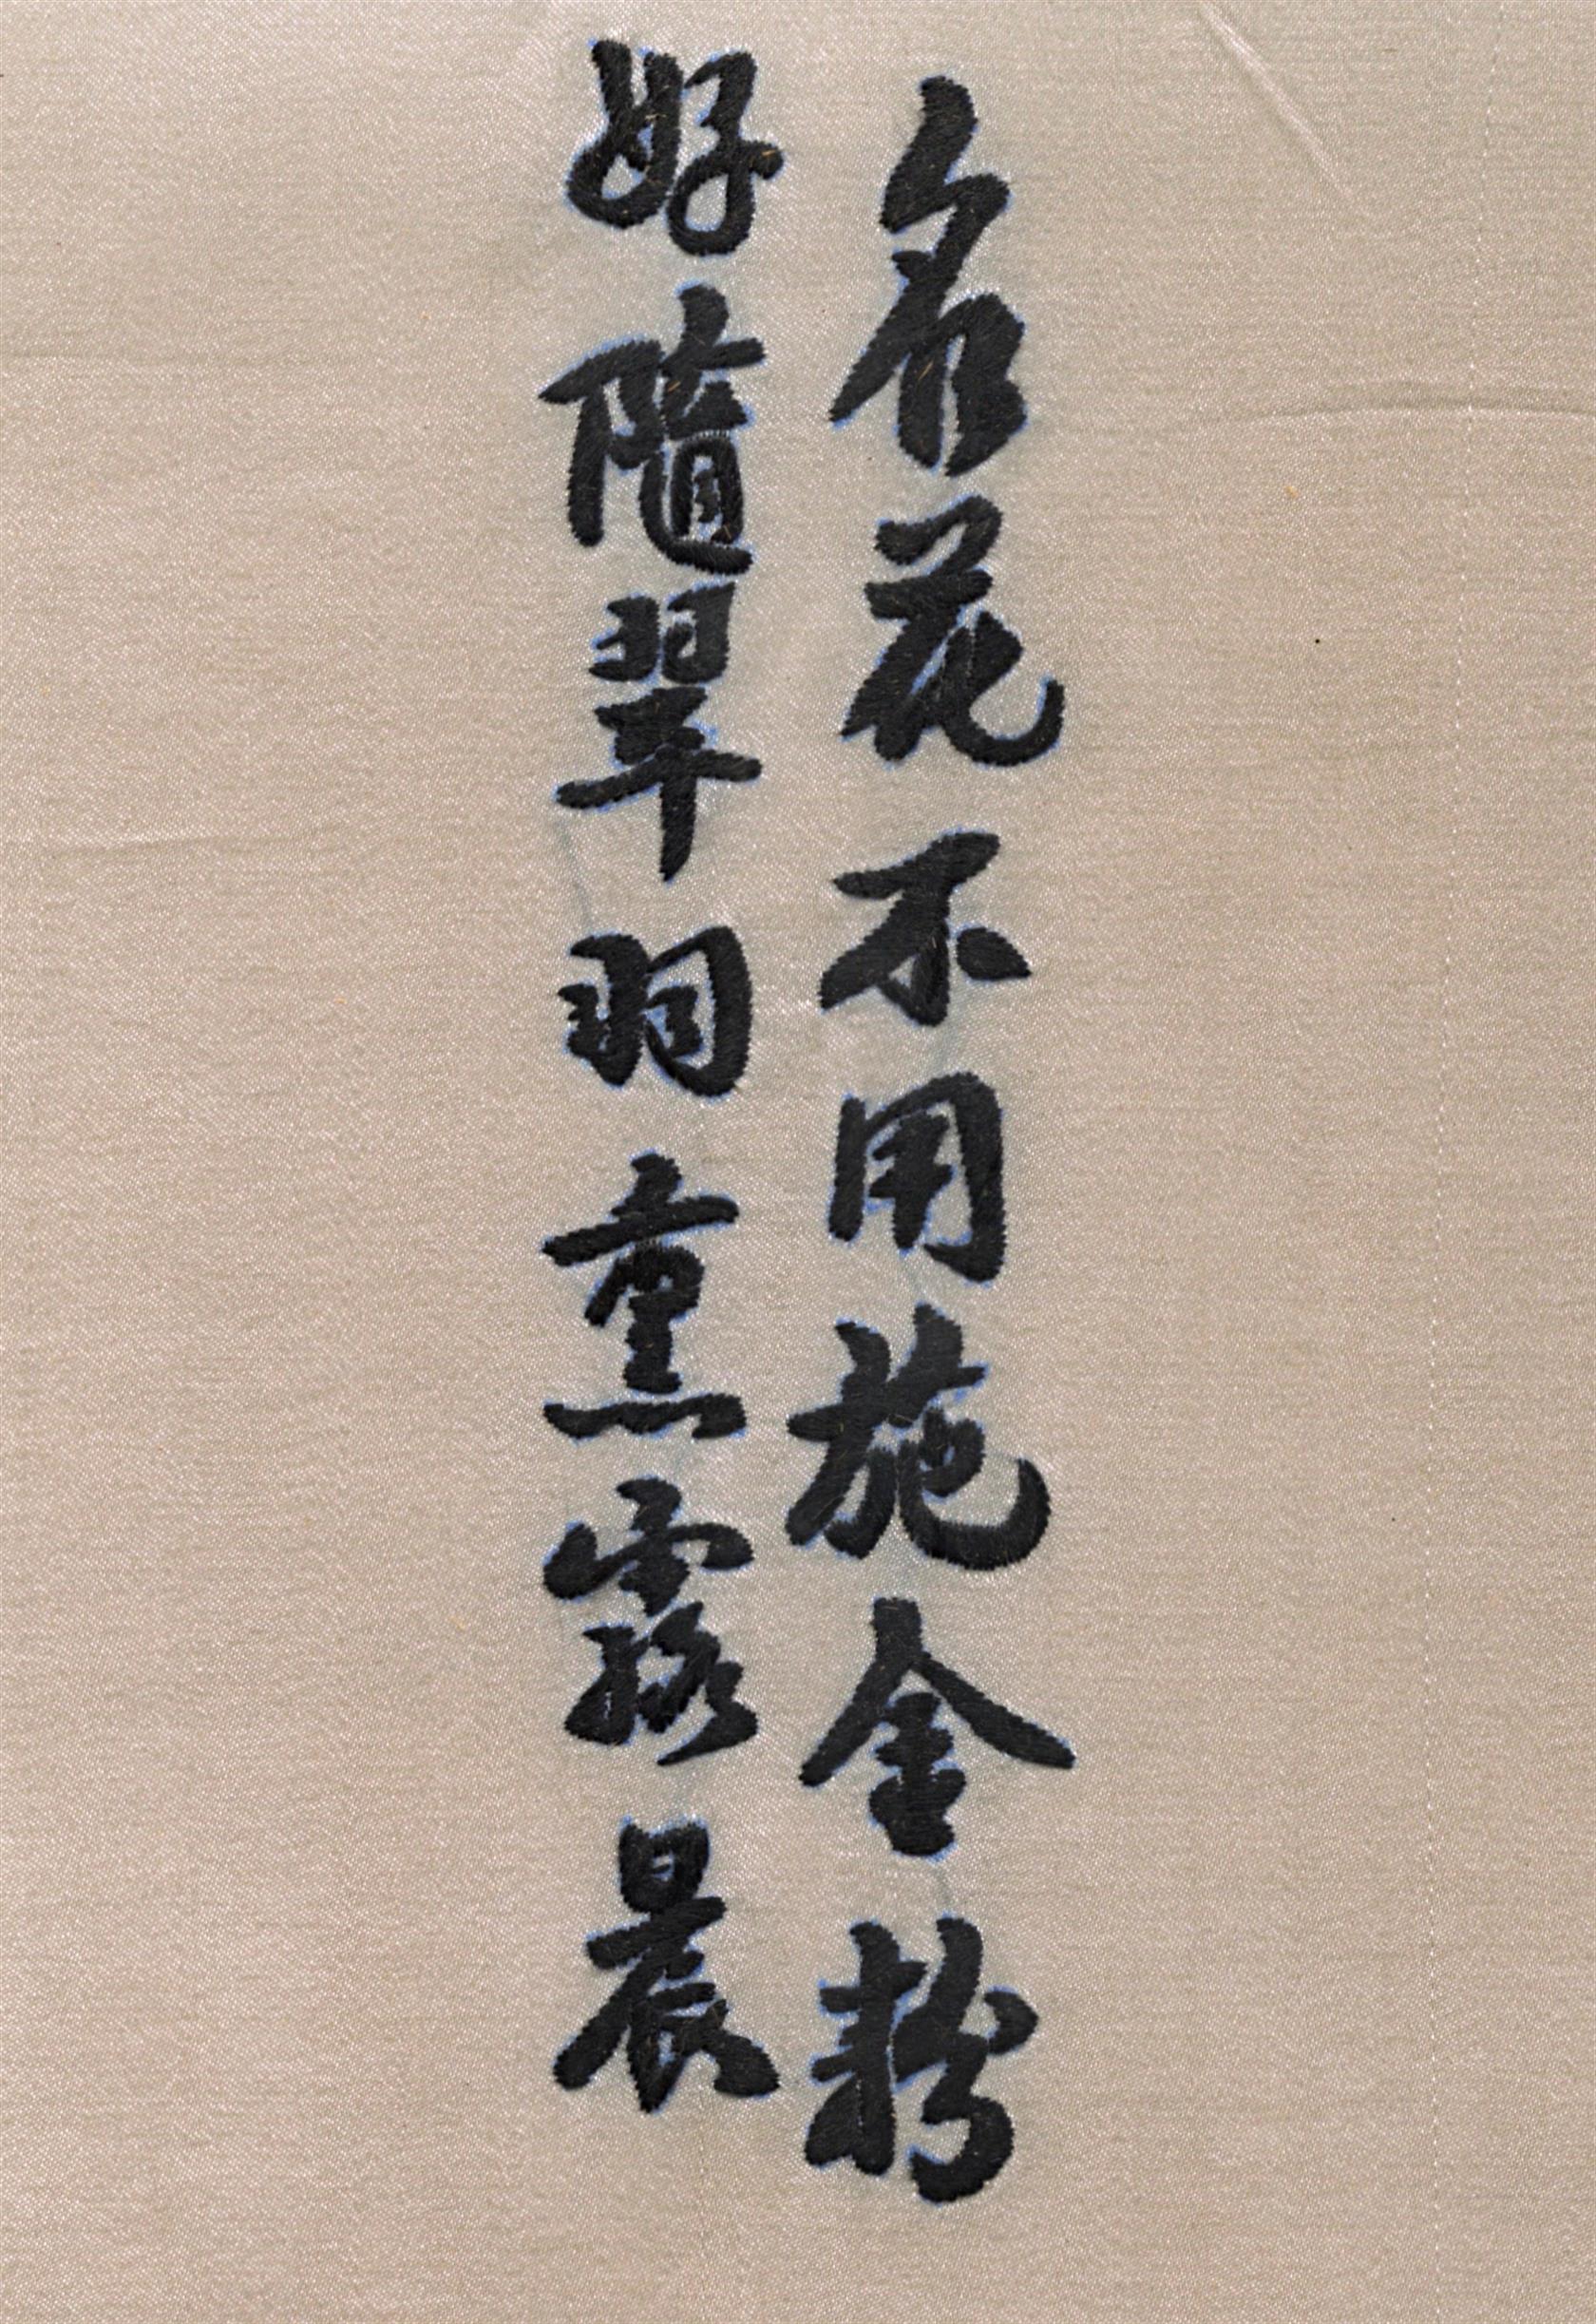 名花不用施金粉
好隨翠羽熏露晨